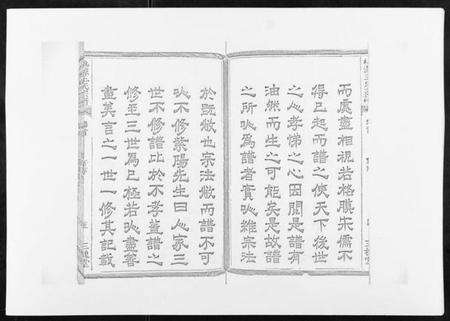 而處盡相視若格膜宋儒不
得已起而譜之使天下後世
之心孝悌之心因閱是譜有
油然而生之可能矣是故譜
之所以為譜者實以維宗法
於既敝也宗法敝而譜不可
以不修紫陽先生曰人家三
世不修譜比於不孝蓋譜之
修至三世為已極若以盡善
盡美言之一世一修其記載